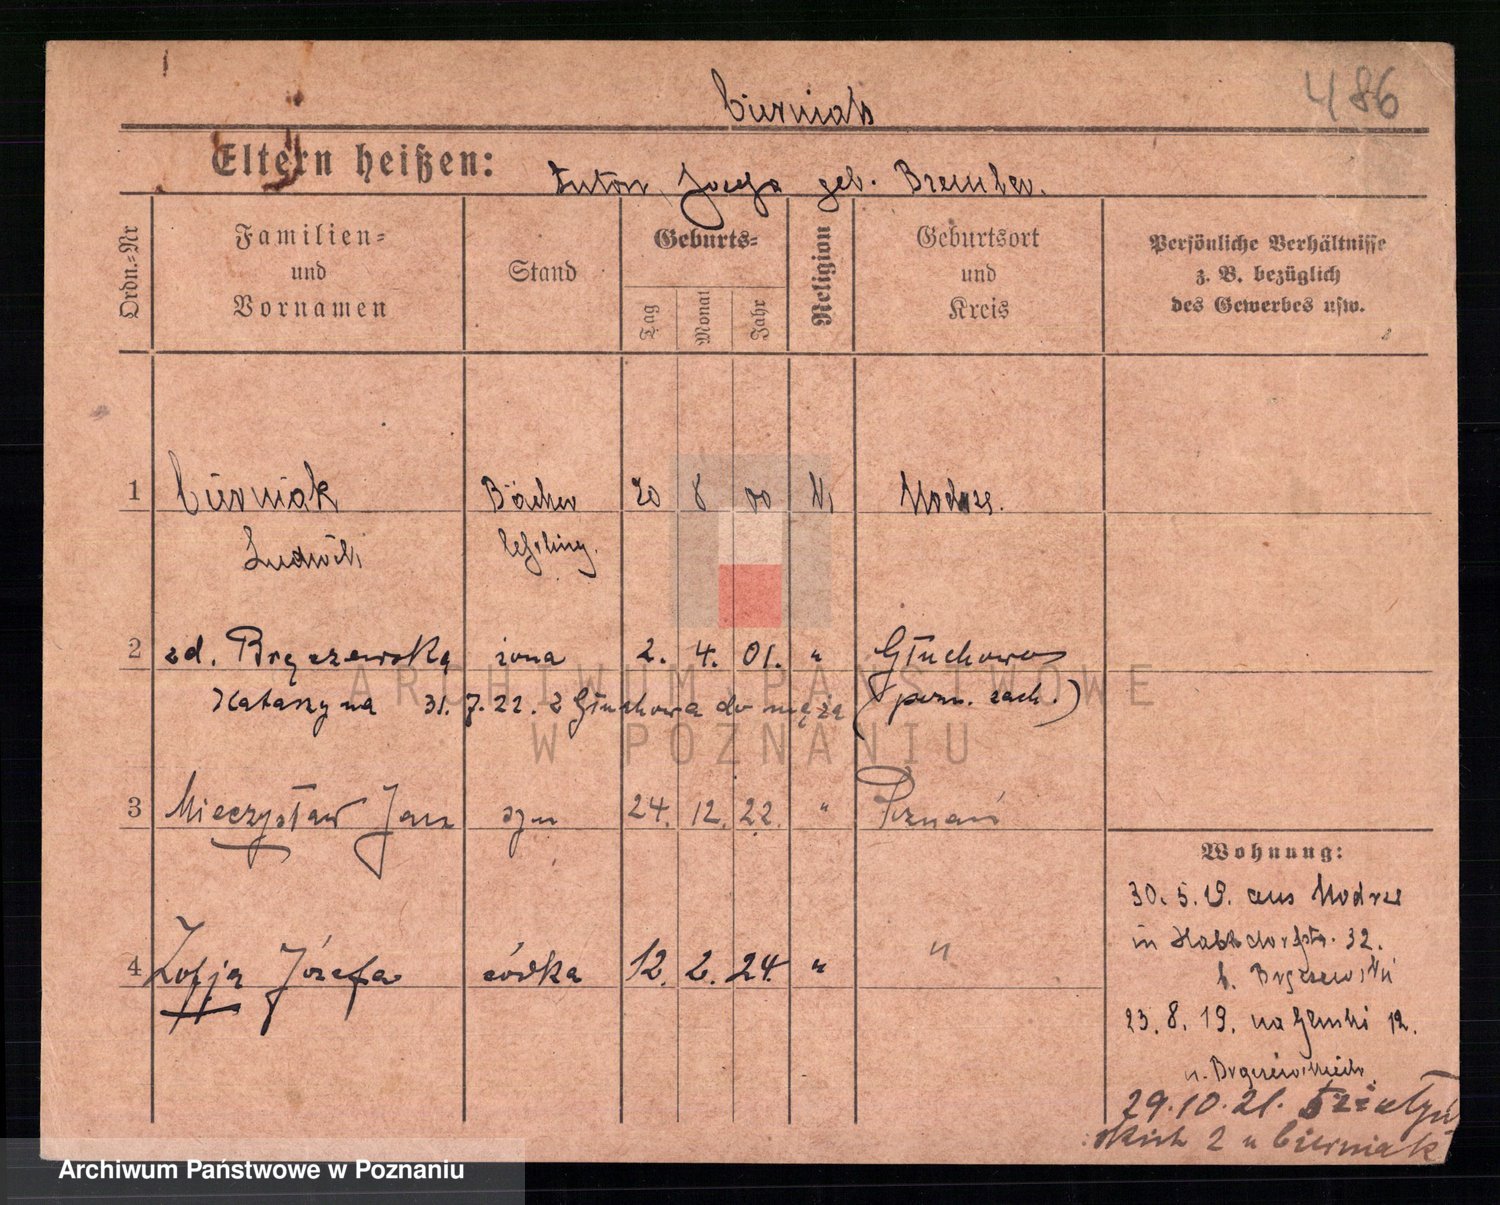 486
Cierniak
Eltern heißen: Anton, Josefa geb. Brember.
Ordn.=Nr
Familien=
und
Vornamen
Stand
Geburts=
Tag
Monat
Jahr
Religion
Geburtsort
und
Kreis
Persönliche Verhältnisse
z. B. bezüglich
des Gewerbes usw.
1 Cierniak Bäcker 20 8 00 K. Modrze.
Ludwik lehrling.
2 zd. Bryszewska żona 2. 4. 01. " Głuchowo
Katarzyna 31. 7. 22. z Głuchowa do męża (pozn. zach.)
3 Mieczysław Jan syn 24. 12. 22. " Poznań
4 Zofja Józefa córka 12. 2. 24. " "
Wohnung:
30. 5. 19. aus Modrze
in Habsdorfstr. 32.
b. Bryszewski
23. 8. 19. na 12.
u.
29. 10. 21.
skich 2 u Cierniak
ARCHIWUM PAŃSTWOWE
W POZNANIU
Archiwum Państwowe w Poznaniu